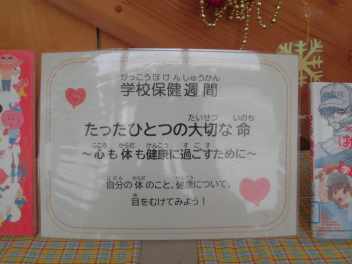 がっこうほけんしゅうかん
学校保健週間
たいせつ いのち
たったひとつの大切な命
こころ からだ けんこう すごす
～心も体も健康に過ごすために～
じぶん からだ けんこう
自分の体のこと、健康について、
め
目をむけてみよう！